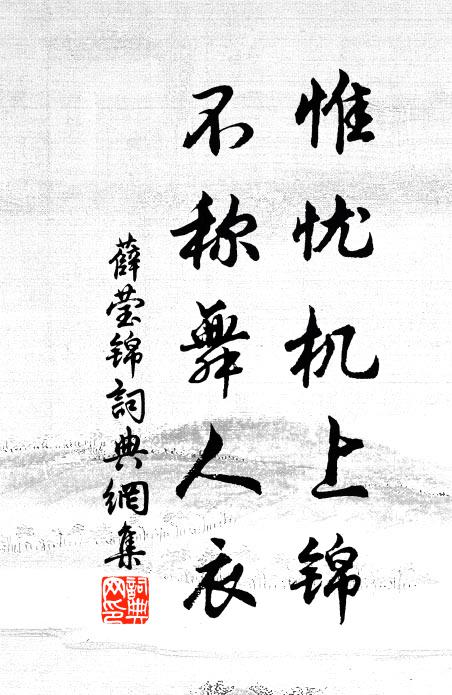 惟忧机上锦
不称舞人衣
薛莹锦詞典網集
詞典网印